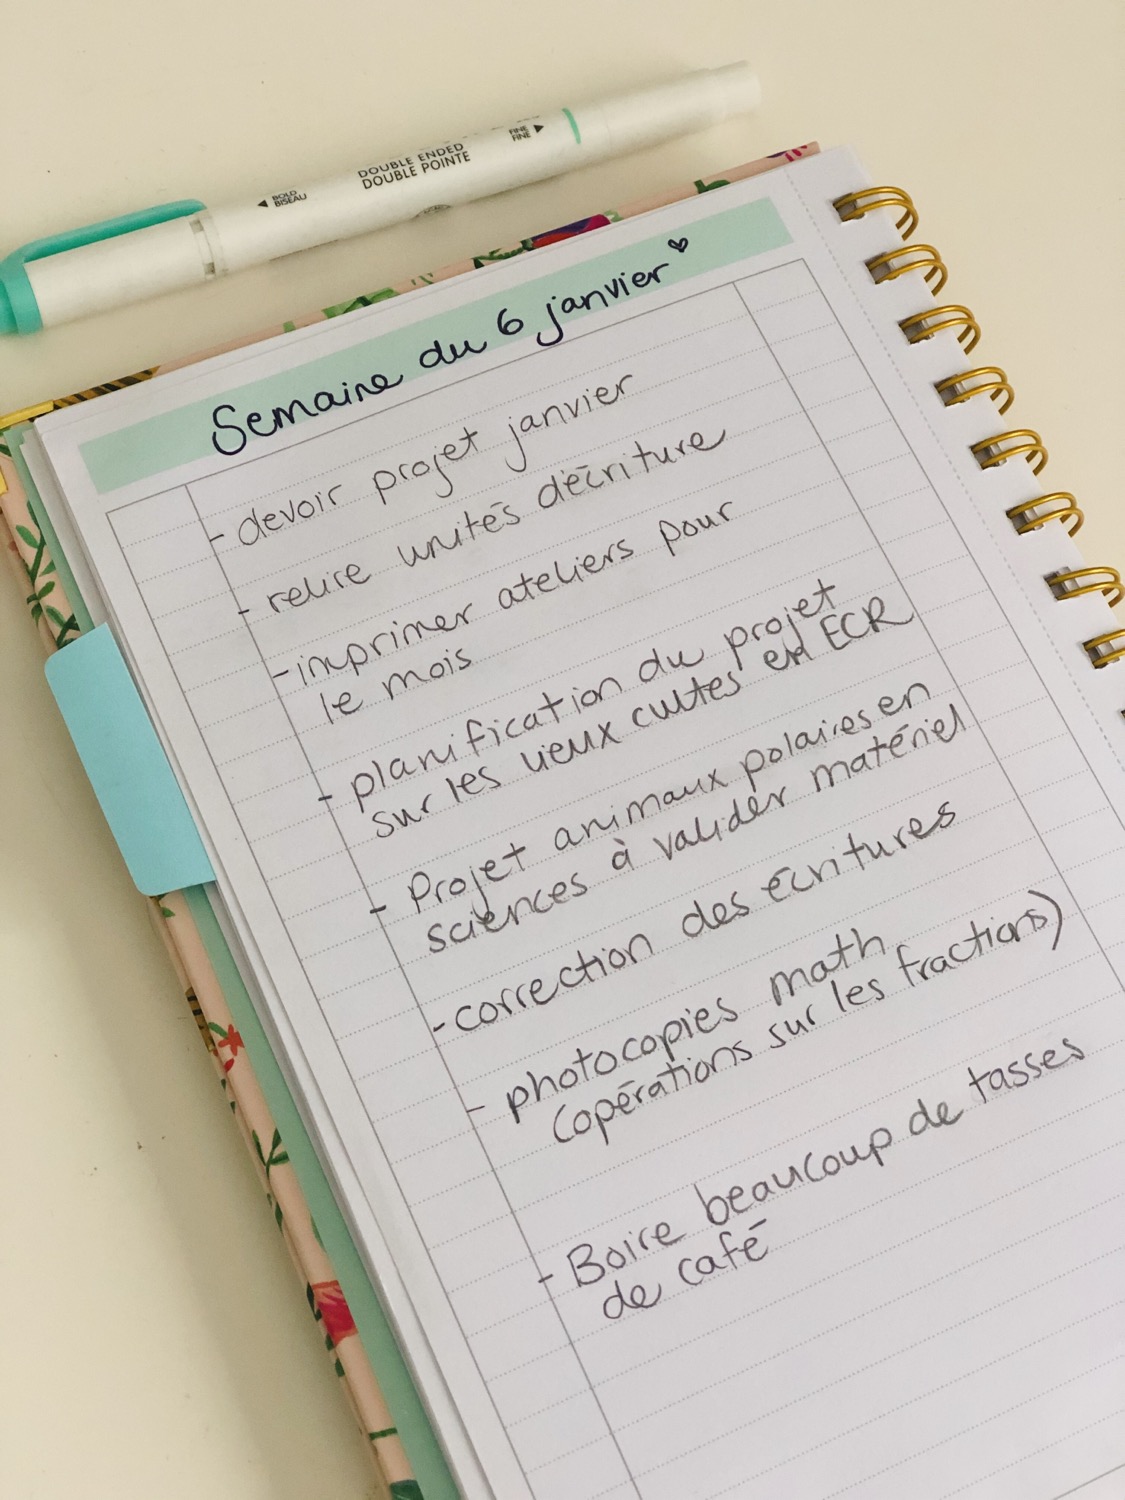 BOLD
BISEAU
DOUBLE ENDED
DOUBLE POINTE
FINE
FINE
Semaine du 6 janvier
- devoir projet janvier
- relire unités d'écriture
- imprimer ateliers pour
le mois
- planification du projet
sur les lieux cultes en ECR
- Projet animaux polaires en
sciences à valider matériel
- correction des écritures
- photocopies math
(opérations sur les fractions)
- Boire beaucoup de tasses
de café